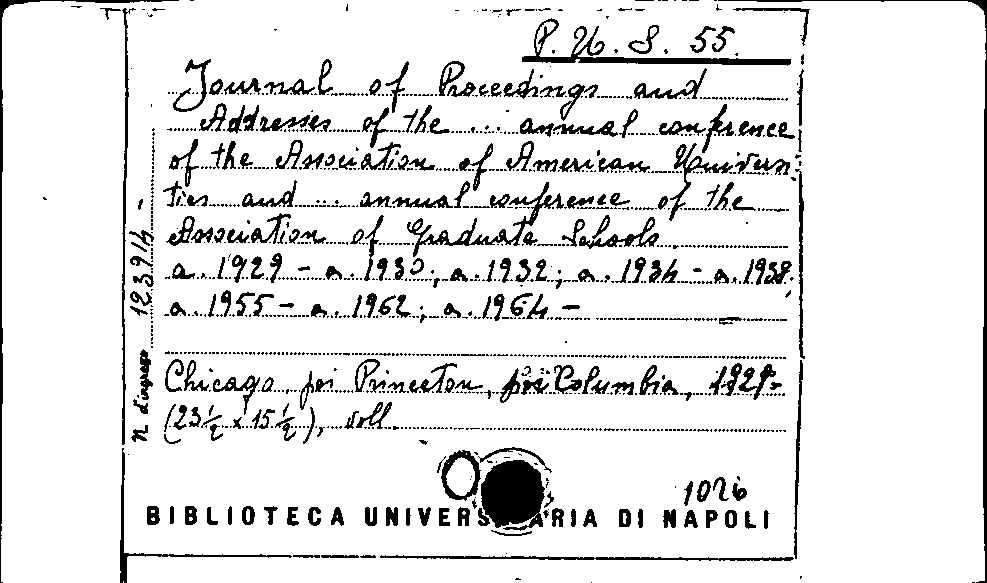 P. U. S. 55.
Journal of Proceedings and
Addresses of the ... annual conference
of the Association of American Universi-
ties and ... annual conference of the
Association of Graduate Schools.
a. 1929 - a. 1930; a. 1932; a. 1934 - a. 1938;
a. 1955 - a. 1962; a. 1964 -
Chicago, poi Princeton, poi Columbia, 1929-
(23½ x 15½), voll.
N. d'ingresso 123914 -
1026
BIBLIOTECA UNIVERSITARIA DI NAPOLI